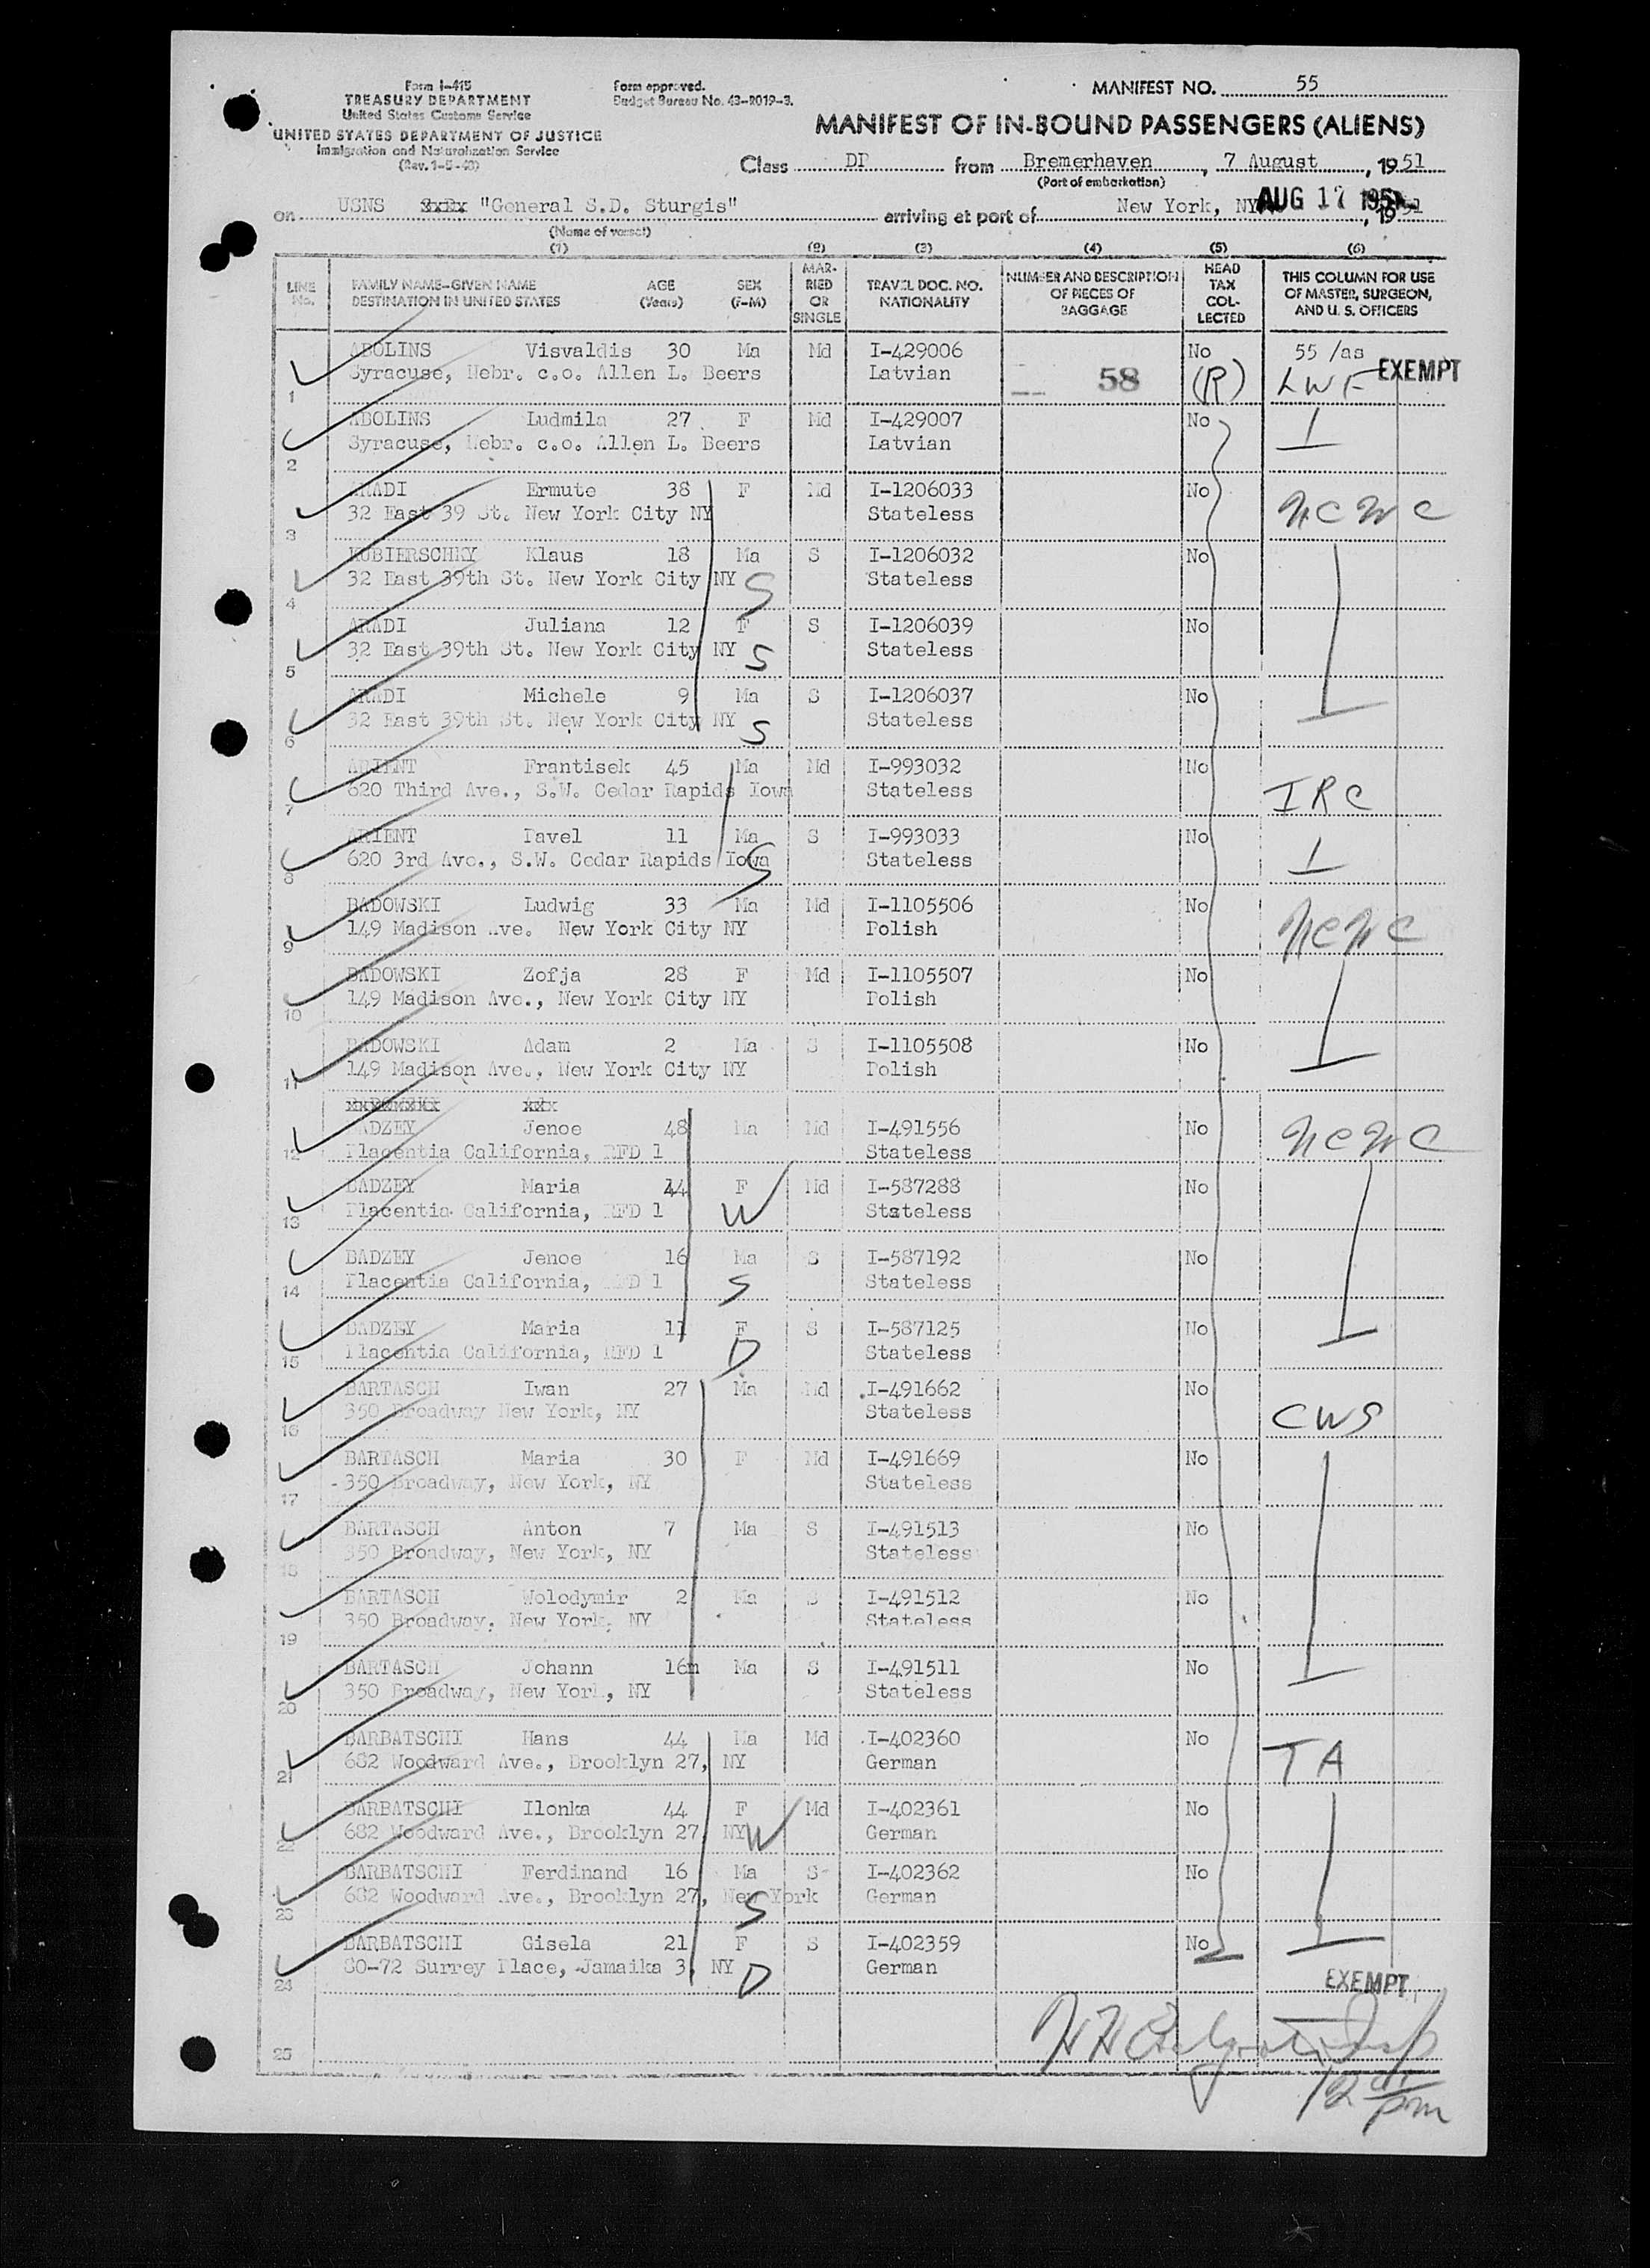 Form I-415
TREASURY DEPARTMENT
United States Customs Service
UNITED STATES DEPARTMENT OF JUSTICE
Immigration and Naturalization Service
(Rev. 1-5-48)
Form approved.
Budget Bureau No. 43-R019-3.
MANIFEST NO. 55
MANIFEST OF IN-BOUND PASSENGERS (ALIENS)
Class DP from Bremerhaven, 7 August, 1951
(Port of embarkation)
on USNS "General S.D. Sturgis" arriving at port of New York, NY AUG 17 1951, 1951
(Name of vessel)
(1) (2) (3) (4) (5) (6)
LINE No. FAMILY NAME-GIVEN NAME DESTINATION IN UNITED STATES AGE (Years) SEX (F-M) MARRIED OR SINGLE TRAVEL DOC. NO. NATIONALITY NUMBER AND DESCRIPTION OF PIECES OF BAGGAGE HEAD TAX COLLECTED THIS COLUMN FOR USE OF MASTER, SURGEON, AND U. S. OFFICERS
ABOLINS Visvaldis 30 Ma Md I-429006 No 55 /as EXEMPT
1 Syracuse, Nebr. c.o. Allen L. Beers Latvian 58 (R) LWF
ABOLINS Ludmila 27 F Md I-429007 No
2 Syracuse, Nebr. c.o. Allen L. Beers Latvian
ARADI Ermute 38 F Md I-1206033 No NCWC
3 32 East 39 St. New York City NY Stateless
KUBIERSCHKY Klaus 18 Ma S I-1206032 No
4 32 East 39th St. New York City NY S Stateless
ARADI Juliana 12 F S I-1206039 No
5 32 East 39th St. New York City NY S Stateless
ARADI Michele 9 Ma S I-1206037 No
6 32 East 39th St. New York City NY S Stateless
ARIENT Frantisek 45 Ma Md I-993032 No
7 620 Third Ave., S.W. Cedar Rapids Iowa Stateless IRC
ARIENT Pavel 11 Ma S I-993033 No
8 620 3rd Ave., S.W. Cedar Rapids Iowa S Stateless
BADOWSKI Ludwig 33 Ma Md I-1105506 No
9 149 Madison Ave. New York City NY Polish NCWC
BADOWSKI Zofja 28 F Md I-1105507 No
10 149 Madison Ave., New York City NY Polish
BADOWSKI Adam 2 Ma S I-1105508 No
11 149 Madison Ave., New York City NY Polish
BADZEY Jenoe 48 Ma Md I-491556 No NCWC
12 Placentia California, RFD 1 Stateless
BADZEY Maria 44 F Md I-587288 No
13 Placentia California, RFD 1 W Stateless
BADZEY Jenoe 16 Ma S I-587192 No
14 Placentia California, RFD 1 S Stateless
BADZEY Maria 11 F S I-587125 No
15 Placentia California, RFD 1 D Stateless
BARTASCH Iwan 27 Ma Md I-491662 No
16 350 Broadway New York, NY Stateless CWS
BARTASCH Maria 30 F Md I-491669 No
17 350 Broadway, New York, NY Stateless
BARTASCH Anton 7 Ma S I-491513 No
18 350 Broadway, New York, NY Stateless
BARTASCH Wolodymir 2 Ma S I-491512 No
19 350 Broadway, New York, NY Stateless
BARTASCH Johann 16m Ma S I-491511 No
20 350 Broadway, New York, NY Stateless
BARBATSCHI Hans 44 Ma Md I-402360 No
21 682 Woodward Ave., Brooklyn 27, NY German TA
BARBATSCHI Ilonka 44 F Md I-402361 No
22 682 Woodward Ave., Brooklyn 27, NY W German
BARBATSCHI Ferdinand 16 Ma S I-402362 No
23 682 Woodward Ave., Brooklyn 27, New York S German
BARBATSCHI Gisela 21 F S I-402359 No
24 80-72 Surrey Place, Jamaika 3, NY D German EXEMPT
25